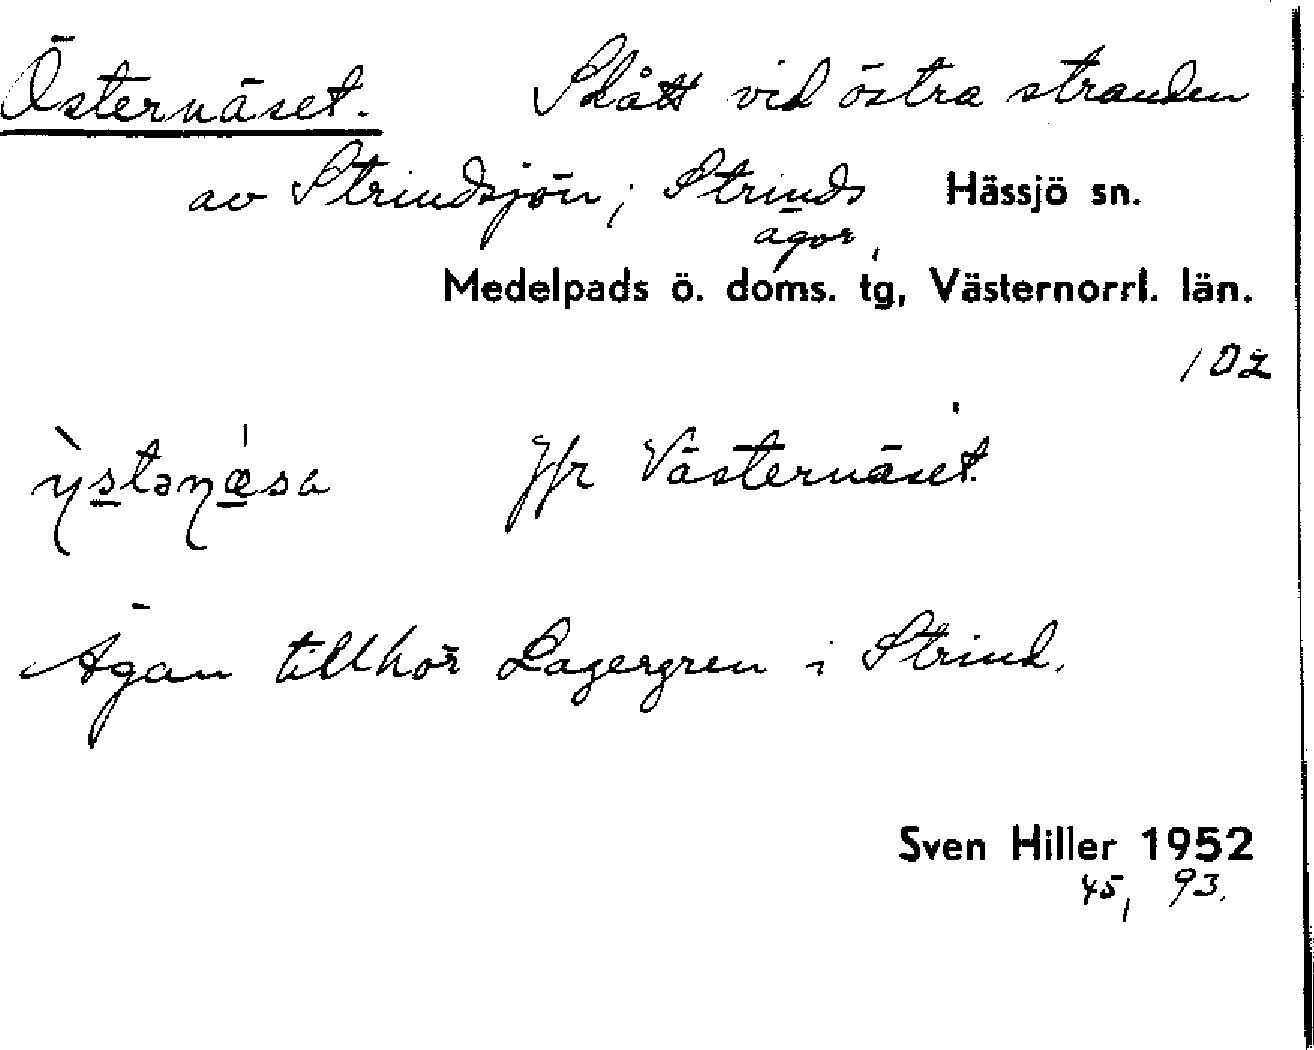 Östernäset. Slått vid östra stranden
av Strindsjön; Strinds Hässjö sn.
ägor,
Medelpads ö. doms. tg, Västernorrl. län.
102
Jfr Västernäset.
Ägan tillhör Lagergren i Strind.
Sven Hiller 1952
45, 93.